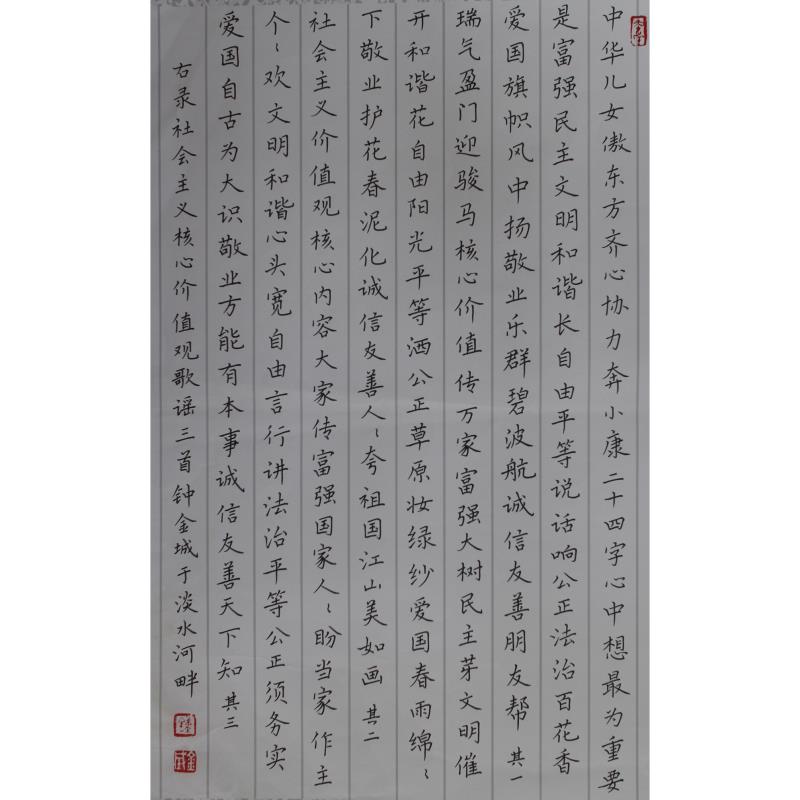 中华儿女傲东方齐心协力奔小康二十四字心中想最为重要
是富强民主文明和谐长自由平等说话响公正法治百花香
爱国旗帜风中扬敬业乐群碧波航诚信友善朋友帮 其一
瑞气盈门迎骏马核心价值传万家富强大树民主芽文明催
开和谐花自由阳光平等洒公正草原妆绿纱爱国春雨绵〻
下敬业护花春泥化诚信友善人〻夸祖国江山美如画 其二
社会主义价值观核心内容大家传富强国家人〻盼当家作主
个〻欢文明和谐心头宽自由言行讲法治平等公正须务实
爱国自古为大识敬业方能有本事诚信友善天下知 其三
右录社会主义核心价值观歌谣三首钟金城于淡水河畔